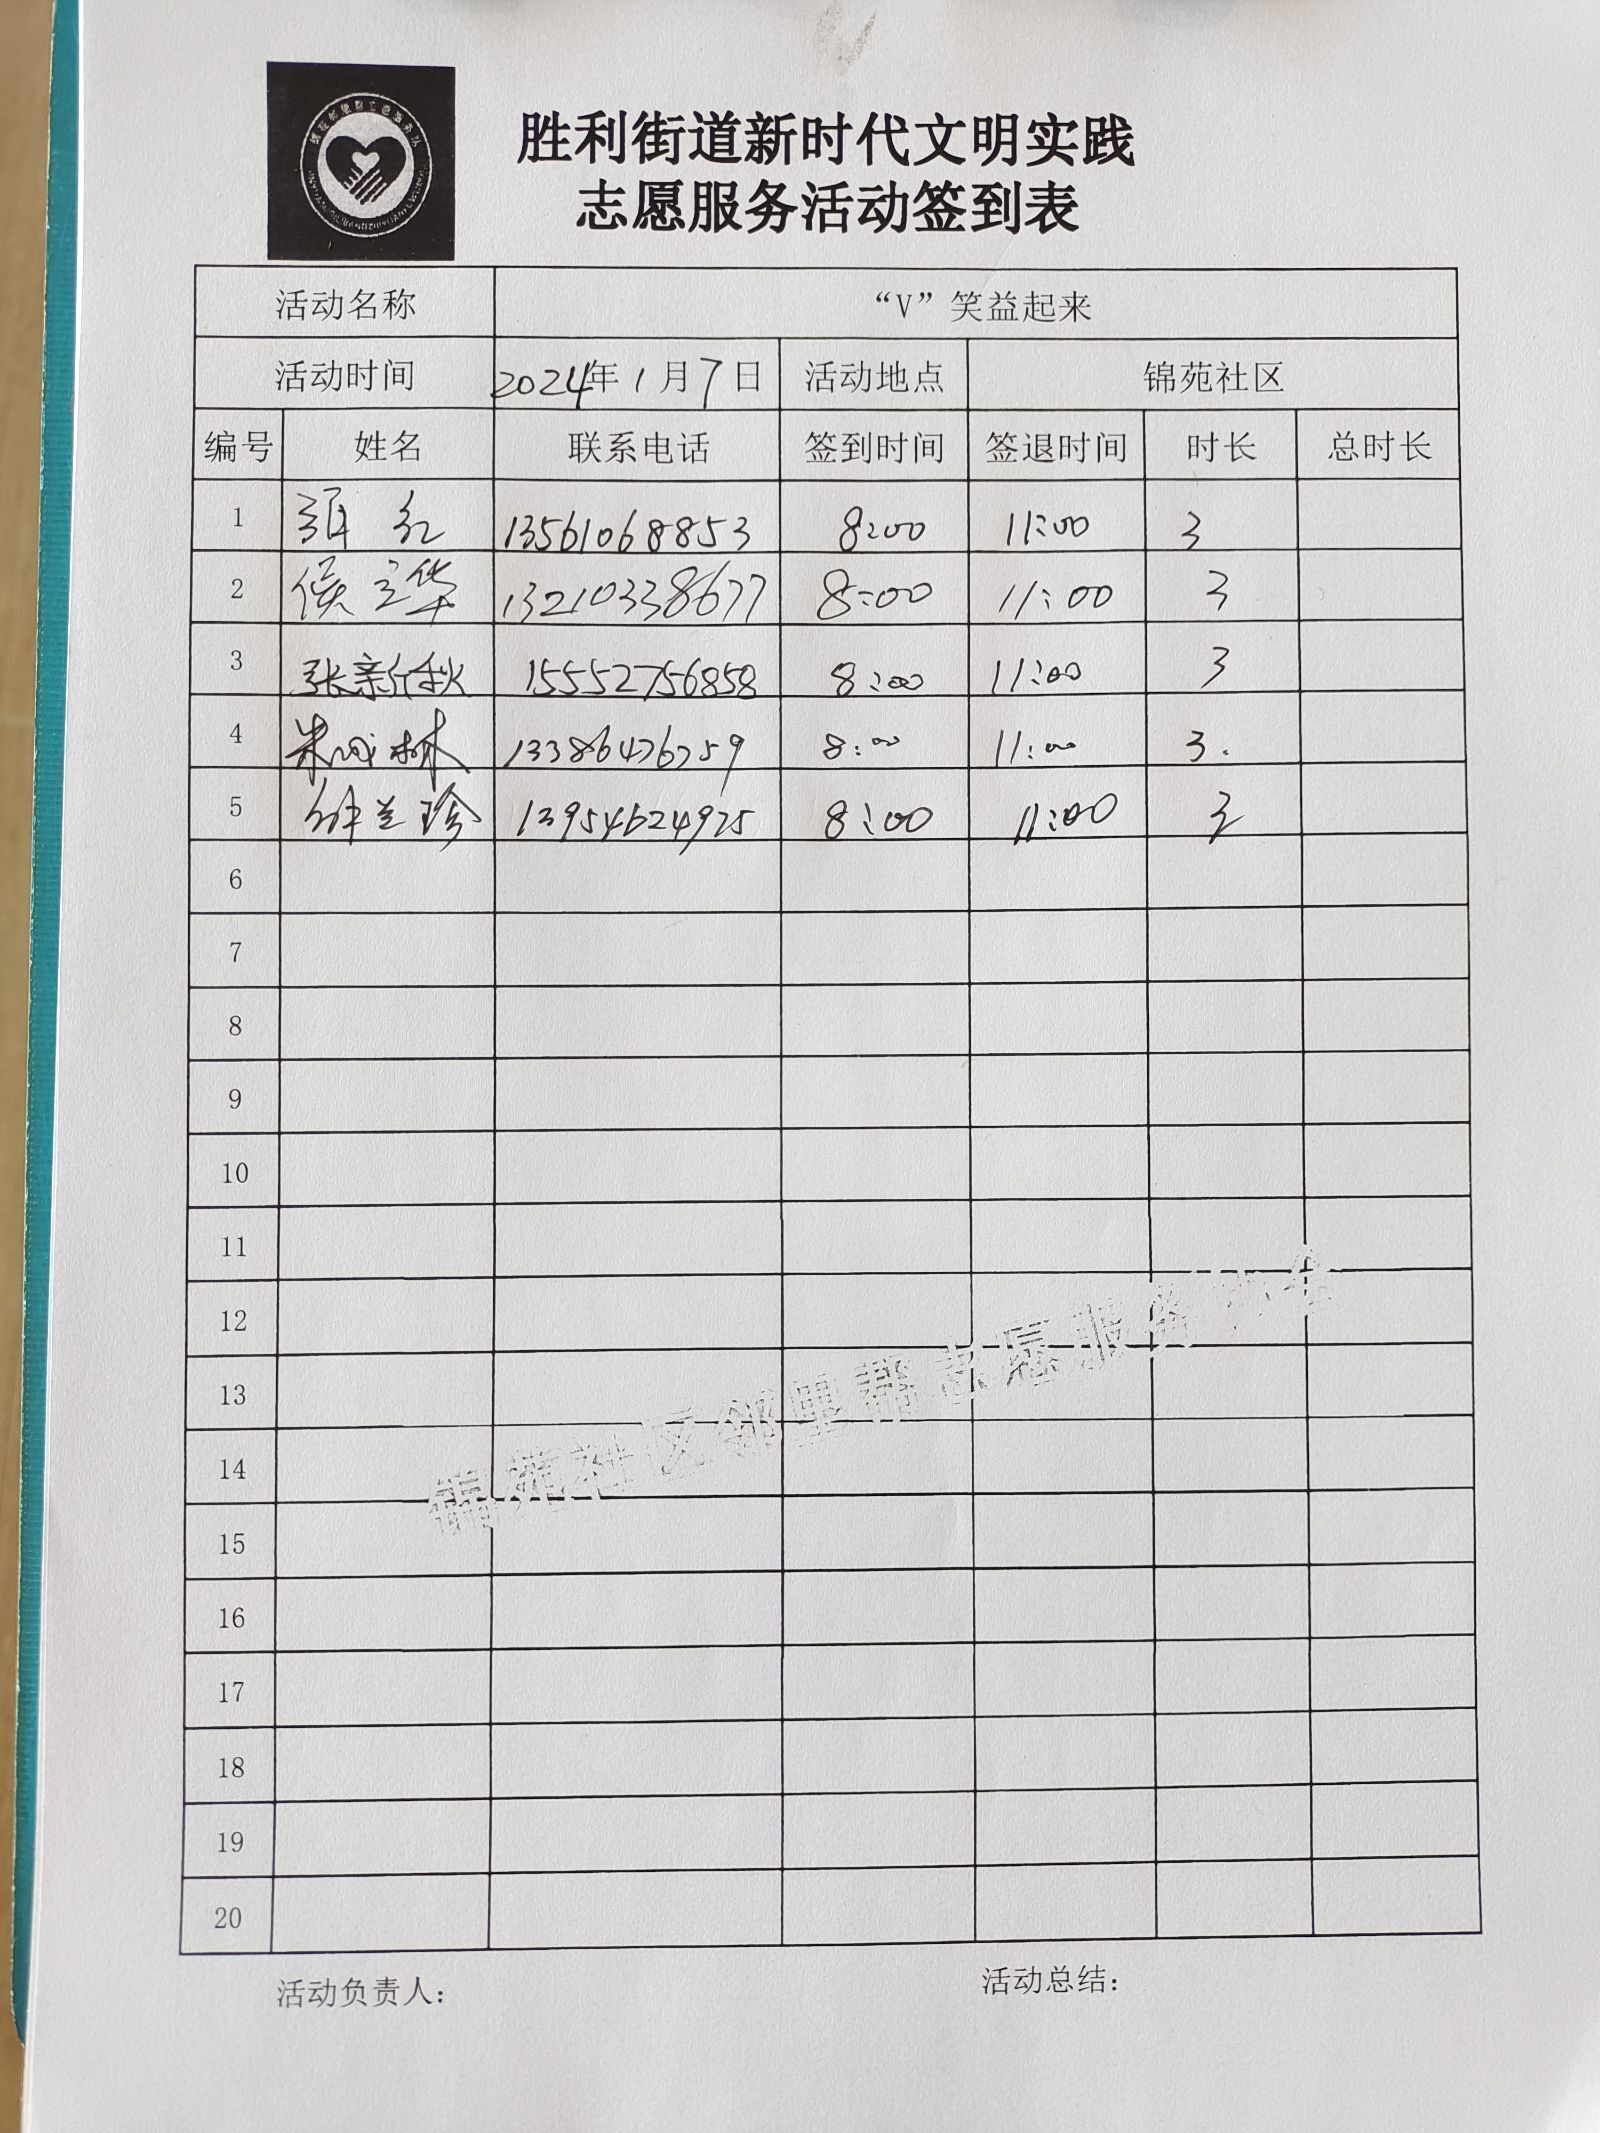 胜利街道新时代文明实践
志愿服务活动签到表
活动名称 “V”笑益起来
活动时间 2024年1月7日 活动地点 锦苑社区
编号 姓名 联系电话 签到时间 签退时间 时长 总时长
1 红 13561068853 8:00 11:00 3
2 侯立华 13210338677 8:00 11:00 3
3 张新秋 15552756858 8:00 11:00 3
4 朱成林 13386476759 8:00 11:00 3.
5 钟兰珍 13954624925 8:00 11:00 3
6
7
8
9
10
11
12
13
14
15
16
17
18
19
20
锦苑社区邻里帮志愿服务协会
活动负责人： 活动总结：